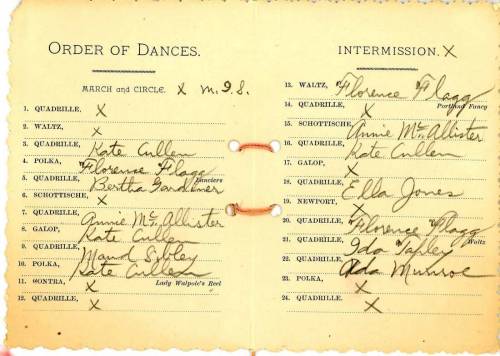 ORDER OF DANCES.
MARCH and CIRCLE. X M.9.8.
1. QUADRILLE, X
2. WALTZ, X
3. QUADRILLE, Kate Cullen
4. POLKA, Florence Flagg
5. QUADRILLE, Lanciers Bertha Gardiner
6. SCHOTTISCHE, X
7. QUADRILLE, Annie McAllister
8. GALOP, Kate Cull
9. QUADRILLE, Maud Sibley
10. POLKA, Kate Cullen
11. CONTRA, X Lady Walpole's Reel
12. QUADRILLE, X
INTERMISSION. X
13. WALTZ, Florence Flagg
14. QUADRILLE, X Portland Fancy
15. SCHOTTISCHE, Annie McAllister
16. QUADRILLE, Kate Cullen
17. GALOP, X
18. QUADRILLE, Ella Jones
19. NEWPORT, X
20. QUADRILLE, Florence Flagg
21. QUADRILLE, Waltz Ida Tapley
22. QUADRILLE, Ada Munroe
23. POLKA, X
24. QUADRILLE, X